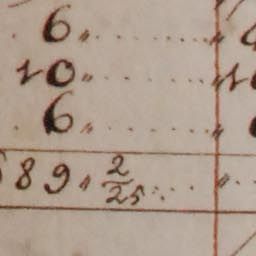 6 〃
10 〃
6 〃
89 〃 2/25